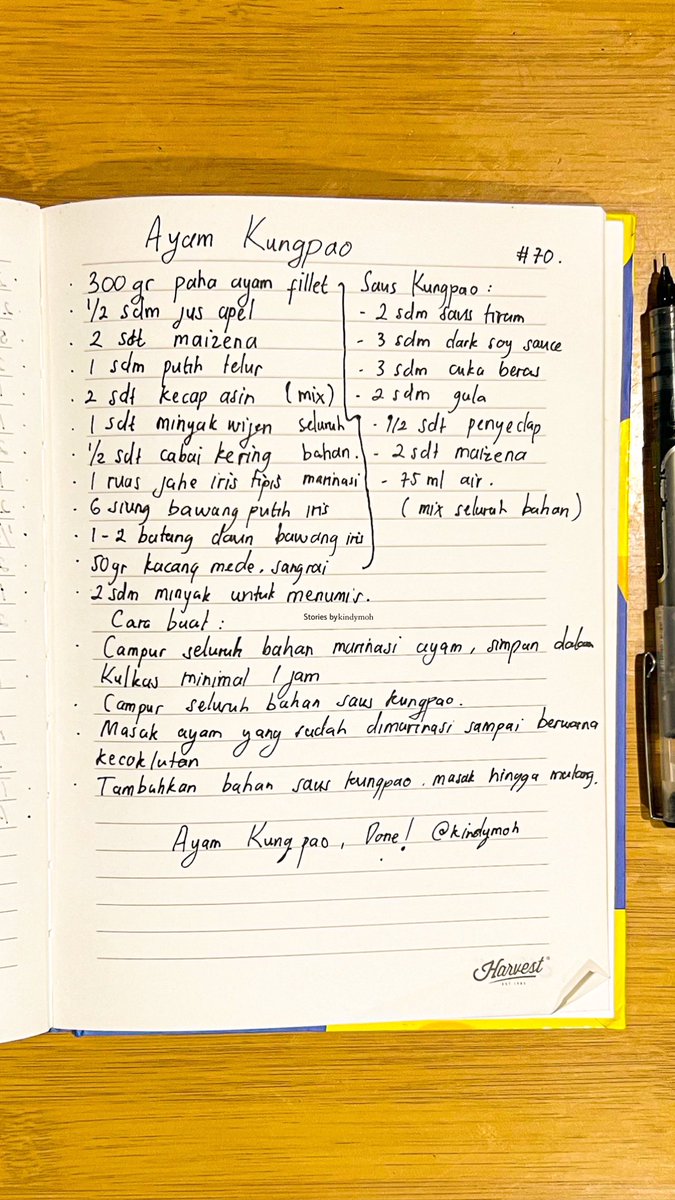 Ayam Kungpao
#70.
· 300 gr paha ayam fillet
· 1/2 sdm jus apel
· 2 sdt maizena
· 1 sdm putih telur
· 2 sdt kecap asin (mix)
· 1 sdt minyak wijen seluruh
· 1/2 sdt cabai kering bahan.
· 1 ruas jahe iris tipis marinasi
· 6 siung bawang putih iris
· 1-2 batang daun bawang iris
· 50gr kacang mede, sangrai
· 2 sdm minyak untuk menumis.
Saus Kungpao :
- 2 sdm saus tiram
- 3 sdm dark soy sauce
- 3 sdm cuka beras
- 2 sdm gula
- 1/2 sdt penyedap
- 2 sdt maizena
- 75 ml air.
(mix seluruh bahan)
Stories by kindymoh
Cara buat :
· Campur seluruh bahan marinasi ayam, simpan dalam
Kulkas minimal 1 jam
· Campur seluruh bahan saus kungpao.
· Masak ayam yang sudah dimarinasi sampai berwarna
kecoklatan
· Tambahkan bahan saus kungpao. masak hingga matang.
Ayam Kungpao, Done! @kindymoh
Harvest
EST 1994